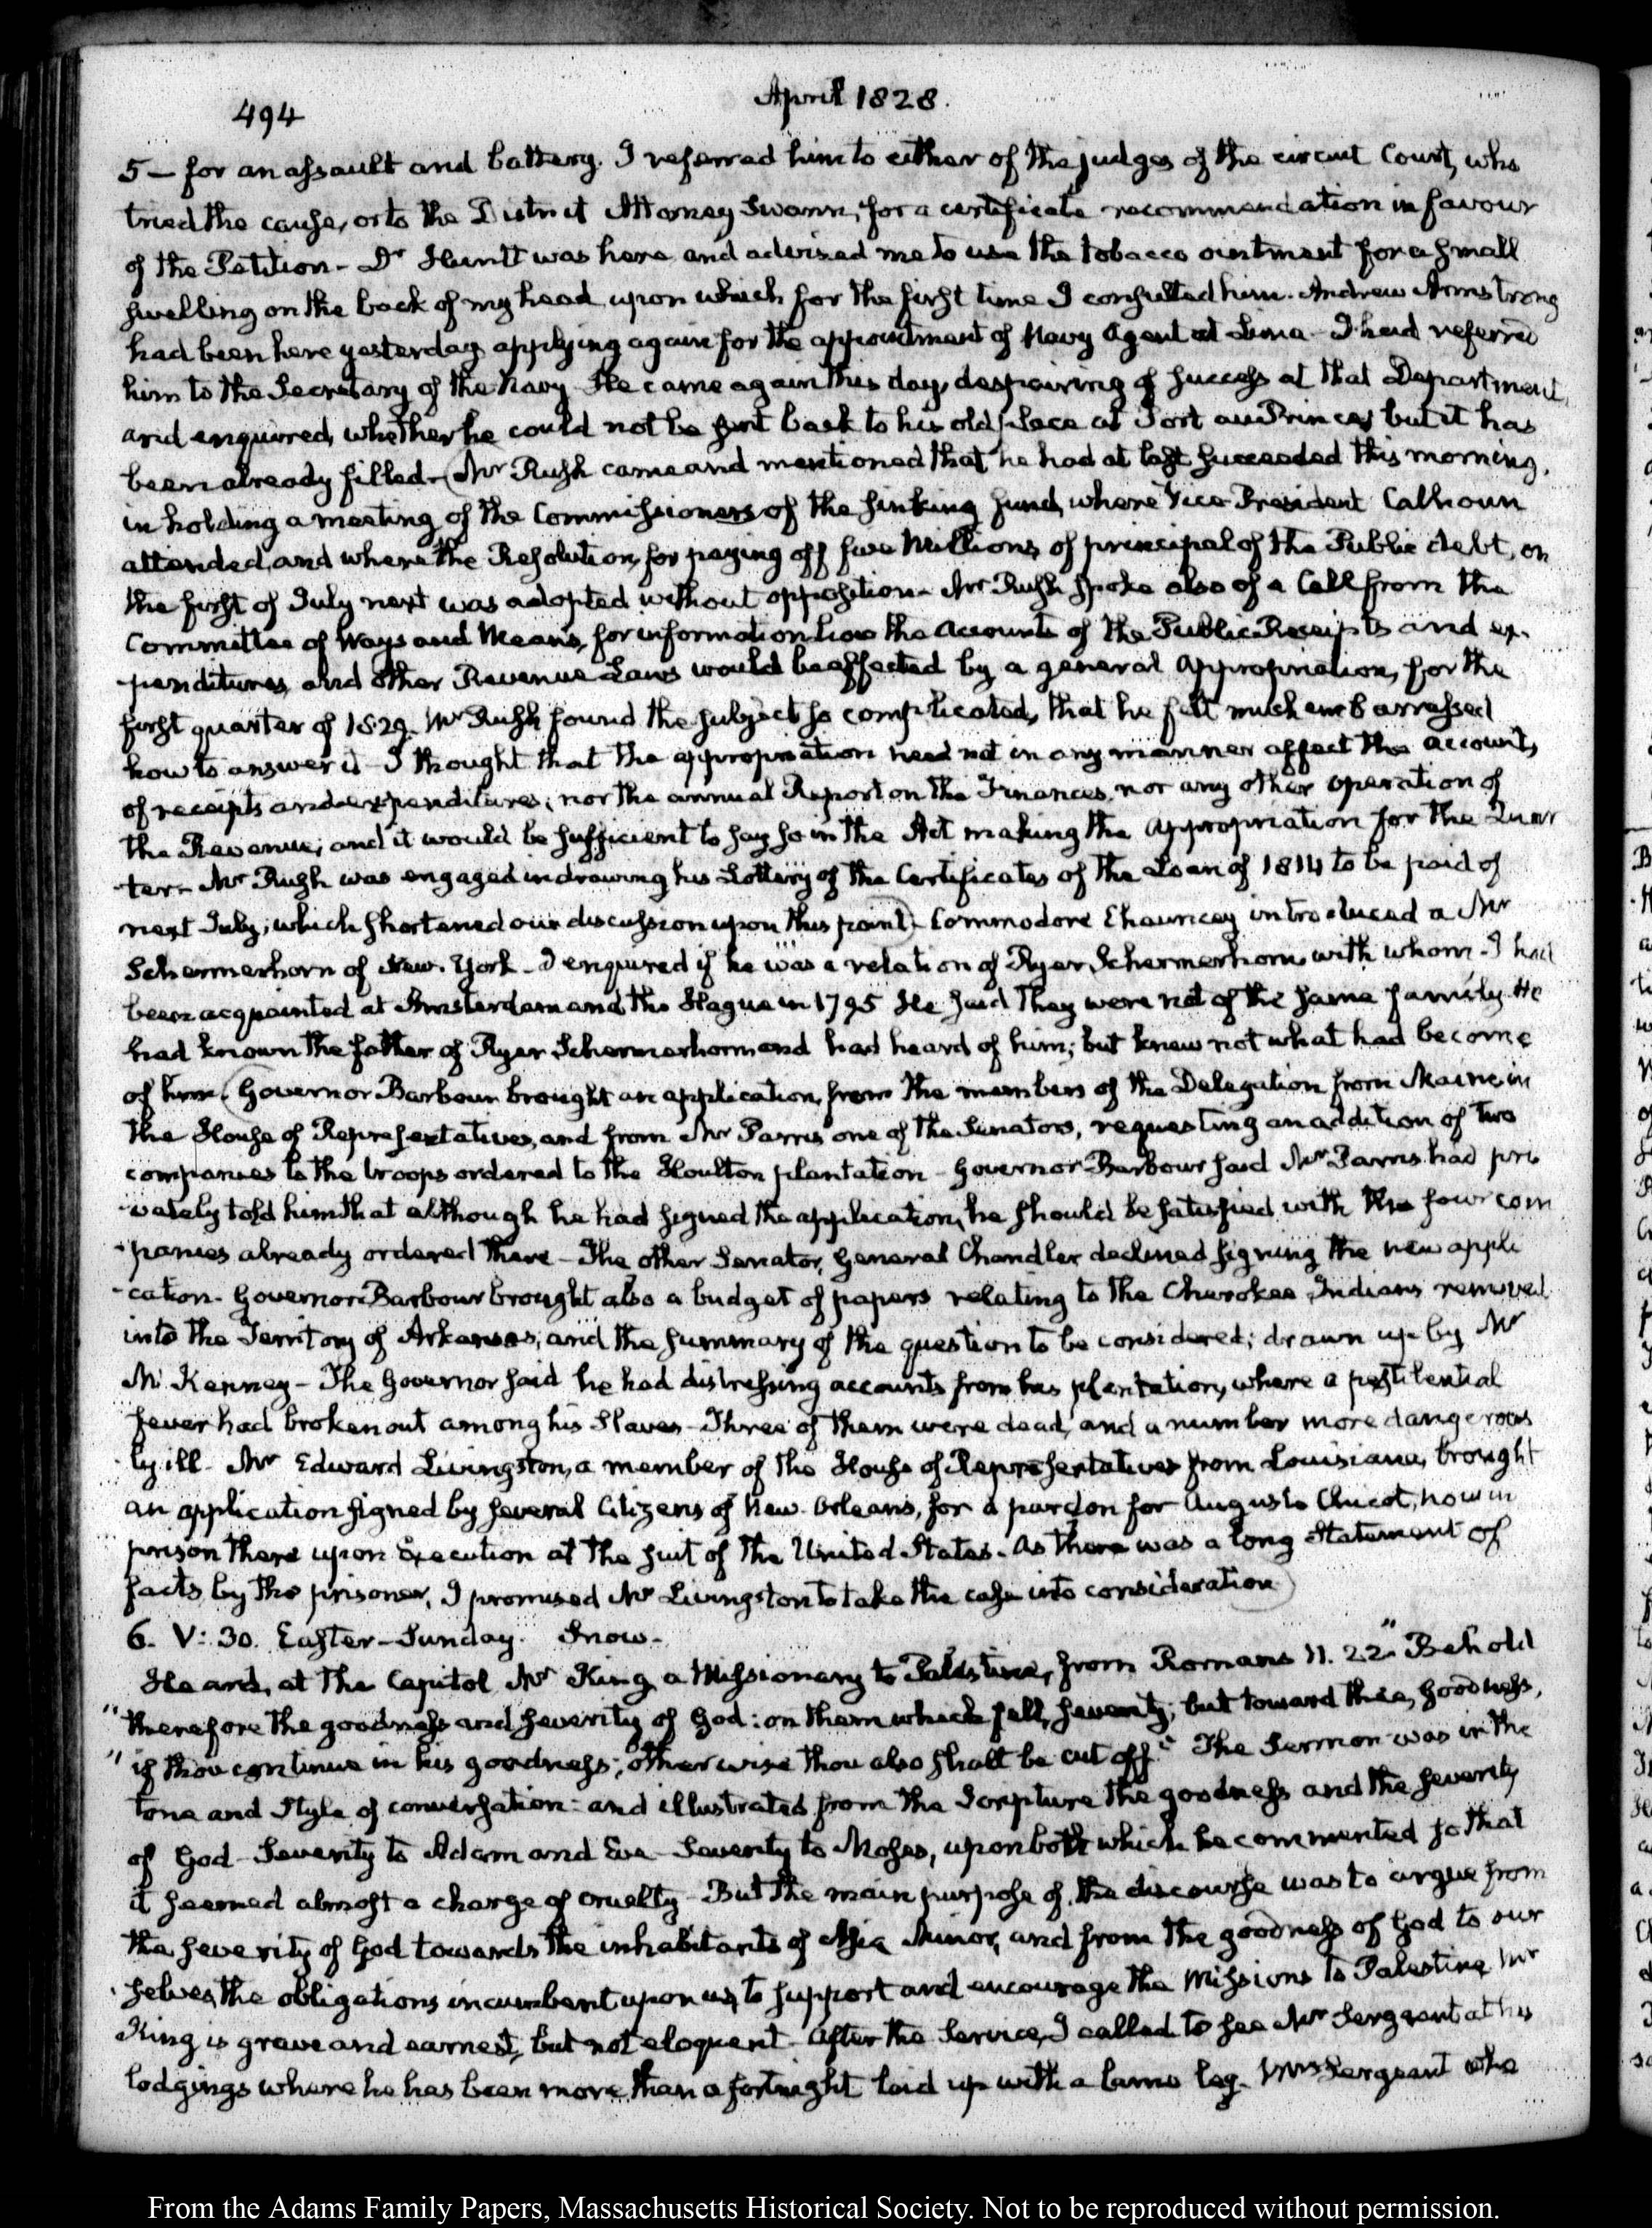 494
April 1828.
5 — for an assault and battery. I referred him to either of the judges of the circuit Court, who
tried the cause, or to the District Attorney Swann, for a certificate recommendation in favour
of the Petition - Dr Huntt was here and advised me to use the tobacco ointment for a small
swelling on the back of my head, upon which for the first time I consulted him. Andrew Armstrong
had been here yesterday applying again for the appointment of Navy Agent at Lima - I had referred
him to the Secretary of the Navy - He came again this day, despairing of success at that Department,
and enquired, whether he could not be sent back to his old place at Port au Prince, but it has
been already filled - (Mr Rush came and mentioned that he had at last succeeded this morning,
in holding a meeting of the Commissioners of the sinking fund, where Vice President Calhoun
attended, and where the Resolution, for paying off five Millions of principal of the Public debt, on
the first of July next was adopted without opposition - Mr Rush spoke also of a Call from the
Committee of Ways and Means, for information how the accounts of the Public Receipts and ex-
-penditures, and other Revenue Laws would be affected by a general Appropriation, for the
first quarter of 1829. Mr Rush found the subject so complicated, that he felt much embarrassed
how to answer it - I thought that the appropriation need not in any manner affect the accounts
of receipts and expenditures; nor the annual Report on the Finances, nor any other operation of
the Revenue; and it would be sufficient to say so in the Act making the Appropriation for the Quar
-ter - Mr Rush was engaged in drawing his Lottery of the Certificates of the Loan of 1814 to be paid of
next July; which shortened our discussion upon this point) - Commodore Chauncey introduced a Mr
Schermerhorn of New-York - I enquired if he was a relation of Ryer Schermerhorn, with whom I had
been acquainted at Amsterdam and the Hague in 1795 He said they were not of the same family. He
had known the father of Ryer Schermerhorn and had heard of him; but knew not what had become
of him. (Governor Barbour brought an application, from the members of the Delegation from Maine in
the House of Representatives, and from Mr Parris one of the Senators, requesting an addition of two
companies to the troops ordered to the Houlton plantation - Governor Barbour said Mr Parris had pri
-vately told him that although he had signed the application, he should be satisfied with the four com
-panies already ordered there - The other Senator, General Chandler declined signing the new appli
-cation. Governor Barbour brought also a budget of papers relating to the Cherokee Indians removed
into the Territory of Arkansas, and the summary of the question to be considered; drawn up by Mr
McKenney - The Governor said he had distressing accounts from his plantation, where a pestilential
fever had broken out among his slaves - Three of them were dead, and a number more dangerous
-ly ill - Mr Edward Livingston, a member of the House of Representatives from Louisiana, brought
an application signed by several Citizens of New-Orleans, for a pardon for Auguste Chucot, now in
prison there upon Execution at the suit of the United States. As there was a long Statement of
facts by the prisoner, I promised Mr Livingston to take the case into consideration)
6. V: 30. Easter-Sunday. Snow -
Heard, at the Capitol Mr King, a Missionary to Palestine, from Romans 11. 22 "Behold
"therefore the goodness and severity of God: on them which fell, severity; but toward thee, goodness,
"if thou continue in his goodness; otherwise thou also shalt be cut off." The Sermon was in the
tone and style of conversation: and illustrated from the Scripture the goodness and the severity
of God - Severity to Adam and Eve - Severity to Moses, upon both which he commented so that
it seemed almost a charge of cruelty - But the main purpose of the discourse was to argue from
the severity of God towards the inhabitants of Asia Minor, and from the goodness of God to our
-selves, the obligations incumbent upon us, to support and encourage the Missions to Palestine Mr
King is grave and earnest, but not eloquent. After the Service, I called to see Mr Sergeant at his
lodgings where he has been more than a fortnight laid up with a lame leg. Mrs Sergeant who
From the Adams Family Papers, Massachusetts Historical Society. Not to be reproduced without permission.